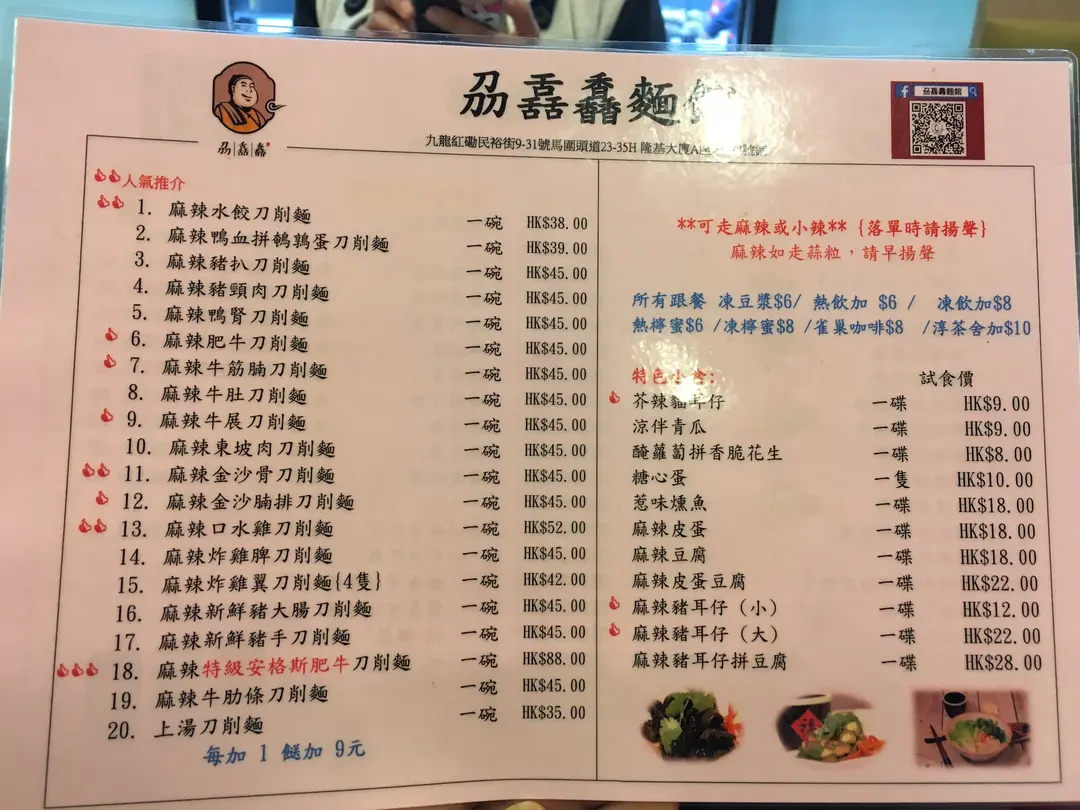 刕舙馫麵
刕舙馫
刕舙馫麵館
九龍紅磡民裕街9-31號馬圍頭道23-35H 隆基大廈A區
人氣推介
1. 麻辣水餃刀削麵 一碗 HK$38.00
2. 麻辣鴨血拼鵪鶉蛋刀削麵 一碗 HK$39.00
3. 麻辣豬扒刀削麵 一碗 HK$45.00
4. 麻辣豬頸肉刀削麵 一碗 HK$45.00
5. 麻辣鴨腎刀削麵 一碗 HK$45.00
6. 麻辣肥牛刀削麵 一碗 HK$45.00
7. 麻辣牛筋腩刀削麵 一碗 HK$45.00
8. 麻辣牛肚刀削麵 一碗 HK$45.00
9. 麻辣牛展刀削麵 一碗 HK$45.00
10. 麻辣東坡肉刀削麵 一碗 HK$45.00
11. 麻辣金沙骨刀削麵 一碗 HK$45.00
12. 麻辣金沙腩排刀削麵 一碗 HK$45.00
13. 麻辣口水雞刀削麵 一碗 HK$52.00
14. 麻辣炸雞脾刀削麵 一碗 HK$45.00
15. 麻辣炸雞翼刀削麵{4隻} 一碗 HK$42.00
16. 麻辣新鮮豬大腸刀削麵 一碗 HK$45.00
17. 麻辣新鮮豬手刀削麵 一碗 HK$45.00
18. 麻辣特級安格斯肥牛刀削麵 一碗 HK$88.00
19. 麻辣牛肋條刀削麵 一碗 HK$45.00
20. 上湯刀削麵 一碗 HK$35.00
每加 1 餸加 9元
**可走麻辣或小辣** {落單時請揚聲}
麻辣如走蒜粒，請早揚聲
所有跟餐 凍豆漿$6/ 熱飲加 $6 / 凍飲加$8
熱檸蜜$6 /凍檸蜜$8 /雀巢咖啡$8 /淳茶舍加$10
特色小食: 試食價
芥辣貓耳仔 一碟 HK$9.00
涼伴青瓜 一碟 HK$9.00
醃蘿蔔拼香脆花生 一碟 HK$8.00
糖心蛋 一隻 HK$10.00
惹味燻魚 一碟 HK$18.00
麻辣皮蛋 一碟 HK$18.00
麻辣豆腐 一碟 HK$18.00
麻辣皮蛋豆腐 一碟 HK$22.00
麻辣豬耳仔（小） 一碟 HK$12.00
麻辣豬耳仔（大） 一碟 HK$22.00
麻辣豬耳仔拼豆腐 一碟 HK$28.00